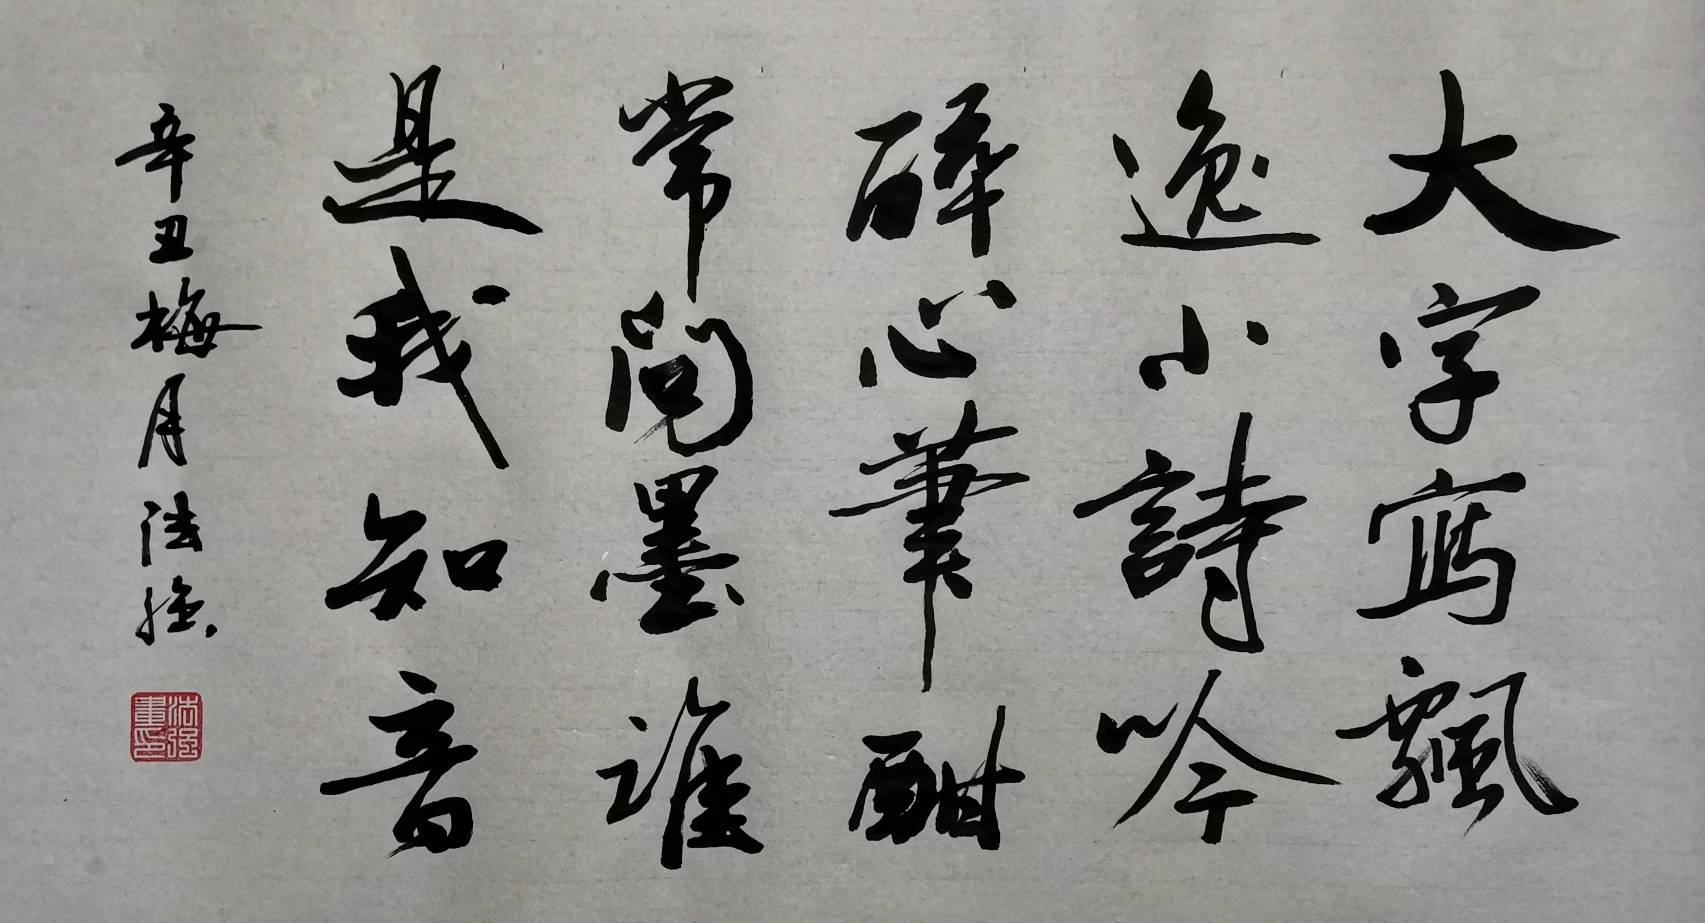 大字寫飄
逸小詩吟
醉心筆酣
常問墨誰
是我知音
辛丑梅月法強
法强書印